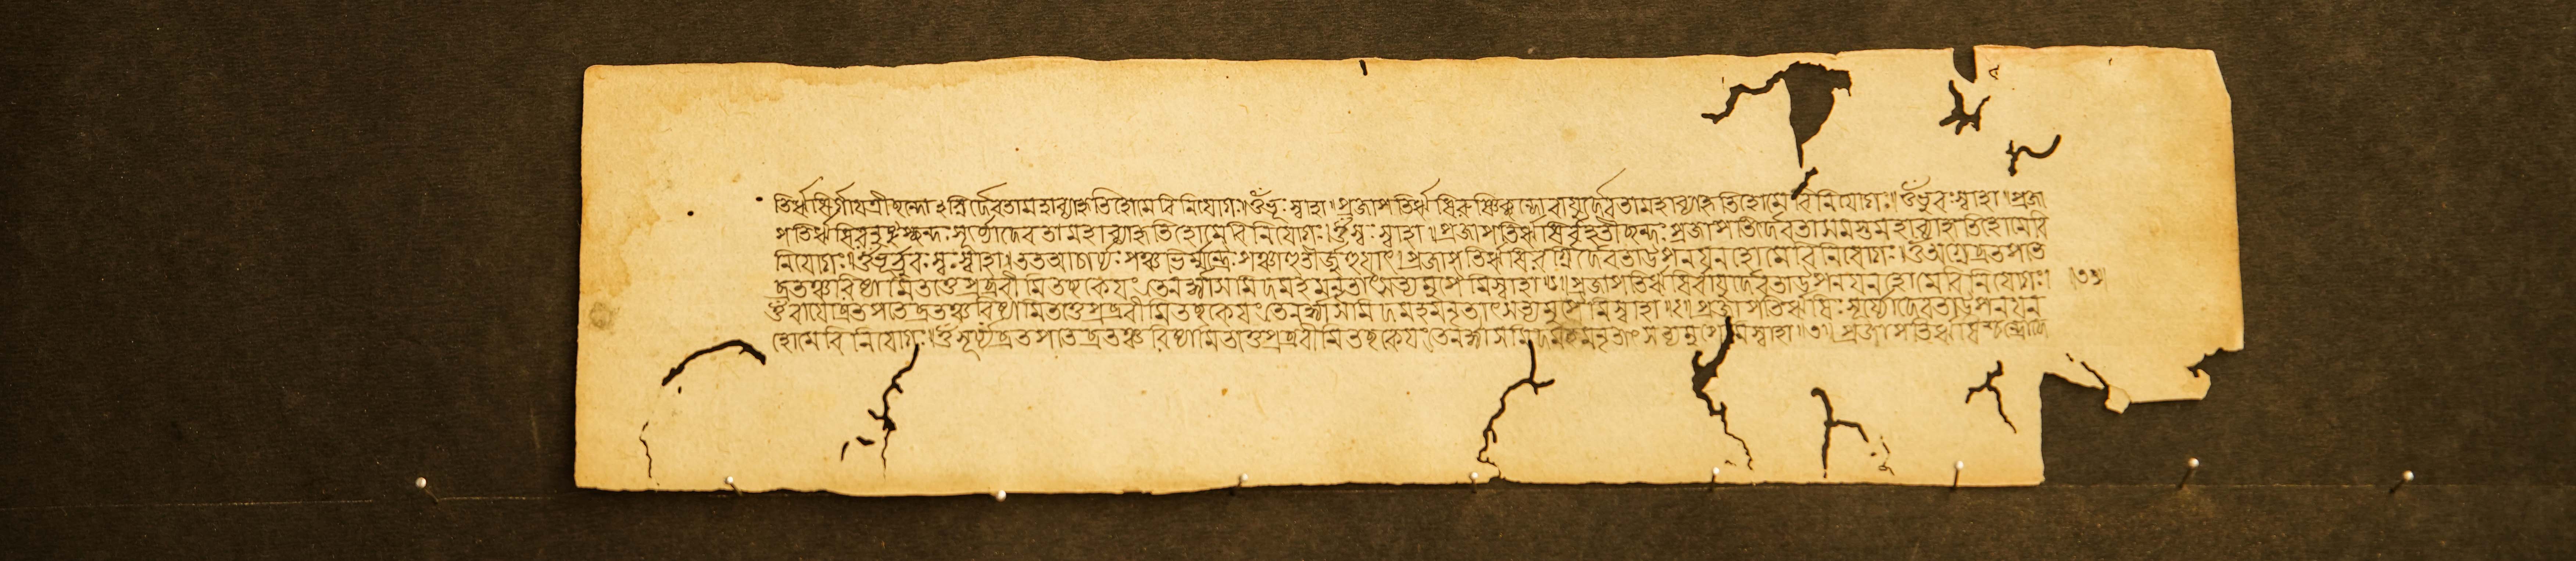 তির্ঋষির্গায়ত্রীছন্দোঽগ্নির্দেবতামহাব্যাহৃতিহোমেবিনিযোগঃ।ওঁভূঃস্বাহা।প্রজাপতিরৃষিরুষ্ণিক্ছন্দোবাযুর্দেবতামহাব্যাহৃতিহোমেবিনিযোগঃ।ওঁভুবঃস্বাহা।প্রজা
পতিরৃষিরনুষ্টুপ্ছন্দঃসূর্য্যোদেবতামহাব্যাহৃতিহোমেবিনিযোগঃ।ওঁস্বঃস্বাহা।প্রজাপতিরৃষির্বৃহতীছন্দঃপ্রজাপতির্দেবতাসমস্তমহাব্যাহৃতিহোমেবি
নিযোগঃ।ওঁভূর্ভুবঃস্বঃস্বাহা।ততআচার্য্যঃপঞ্চভির্ম্মন্ত্রৈঃপঞ্চাহুতীর্জুহুযাৎ।প্রজাপতিরৃষিরগ্নির্দেবতাউপনযনহোমেবিনিযোগঃ।ওঁঅগ্নেব্রতপতে
ব্রতঞ্চরিষ্যামিতত্তেপ্রব্রবীমিতচ্ছকেযংতেনর্দ্ধ্যাসমিদমহমনৃতাৎসত্যমুপৈমিস্বাহা॥১॥প্রজাপতিরৃষির্বাযুর্দেবতাউপনযনহোমেবিনিযোগঃ।
ওঁবাযোব্রতপতেব্রতঞ্চরিষ্যামিতত্তেপ্রব্রবীমিতচ্ছকেযংতেনর্দ্ধ্যাসমিদমহমনৃতাৎসত্যমুপৈমিস্বাহা॥২॥প্রজাপতিরৃষিঃসূর্য্যোদেবতাউপনযন
হোমেবিনিযোগঃ।ওঁসূর্য্যব্রতপতেব্রতঞ্চরিষ্যামিতত্তেপ্রব্রবীমিতচ্ছকেযংতেনর্দ্ধ্যাসমিদমহমনৃতাৎসত্যমুপৈমিস্বাহা॥৩॥প্রজাপতিরৃষিশ্চন্দ্রোদে